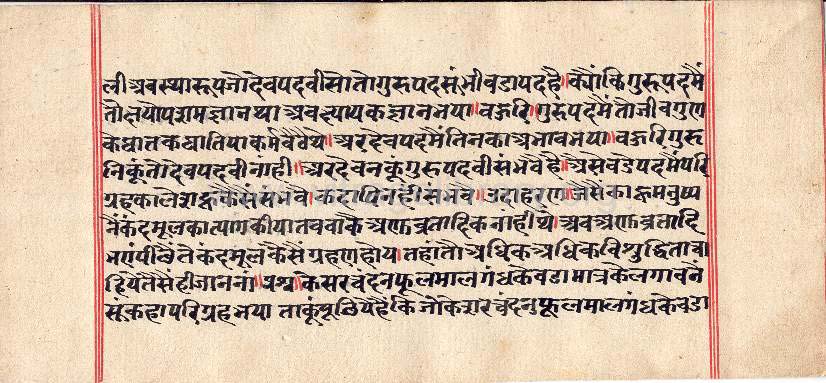 ली अवस्थारूप जो देवपदवी सो तो गुरूपद सं भी वडा पद है॥ क्यौंकि गुरूपद मैं
तौ क्षयोपशम ज्ञान था अव क्षायक ज्ञान भया॥ वहुरि॥ गुरूपद मैं तौ जीव गुण
के घातक घातिया कर्म वैठे थे॥ अर देवपद मैं तिनका अभाव भया॥ वहुरि गुरू
नि कूं तो देवपदवी नांही॥ अर देवन कूं गुरूपदवी संभवै है॥ अैसे वडे पद मैं परि
ग्रह काले शहू कैसे संभवै॥ कदापि नही संभवै॥ उदाहरण॥ जैसे काहू मनुष्य
नैं कंदमूल का त्याग कीया तव वाकै अणुव्रतादिक नांही थे॥ अव अणुव्रतादि
भए पीछैं ते कंदमूल कैसैं ग्रहण होय॥ तहां तौ अधिक अधिक विशुद्धिता चा
हिये तैसैं ही जाननां॥ प्रश्न॥ केसर चंदन फूलमाल गंध केवडा मात्र कै लगावनें
सूं कहा परिग्रह भया ताकूं पूछिये है कि जो केशर चंदन फूलमाल गंध केवडा